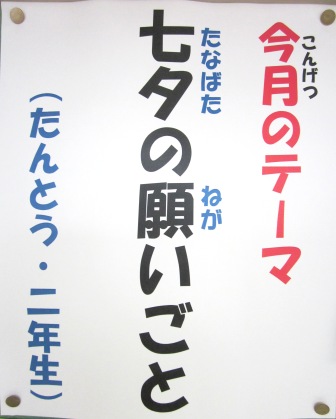 今月のテーマ
こんげつ
七夕の願いごと
たなばた
ねが
（たんとう・二年生）